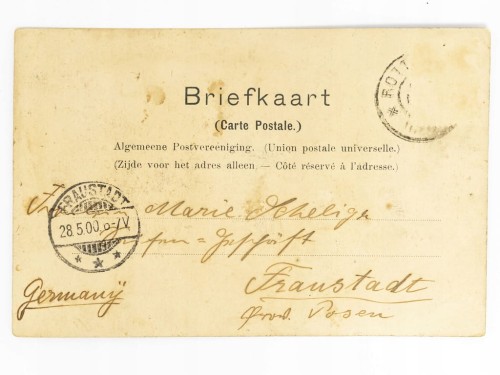 Briefkaart
(Carte Postale.)
Algemeene Postvereeniging. (Union postale universelle.)
(Zijde voor het adres alleen. — Côté réservé à l'adresse.)
* ROTT
FRAUSTADT
28.5.00.6-7V.
* * *
Marie
Geschäft
Fraustadt
Prov. Posen
Germany